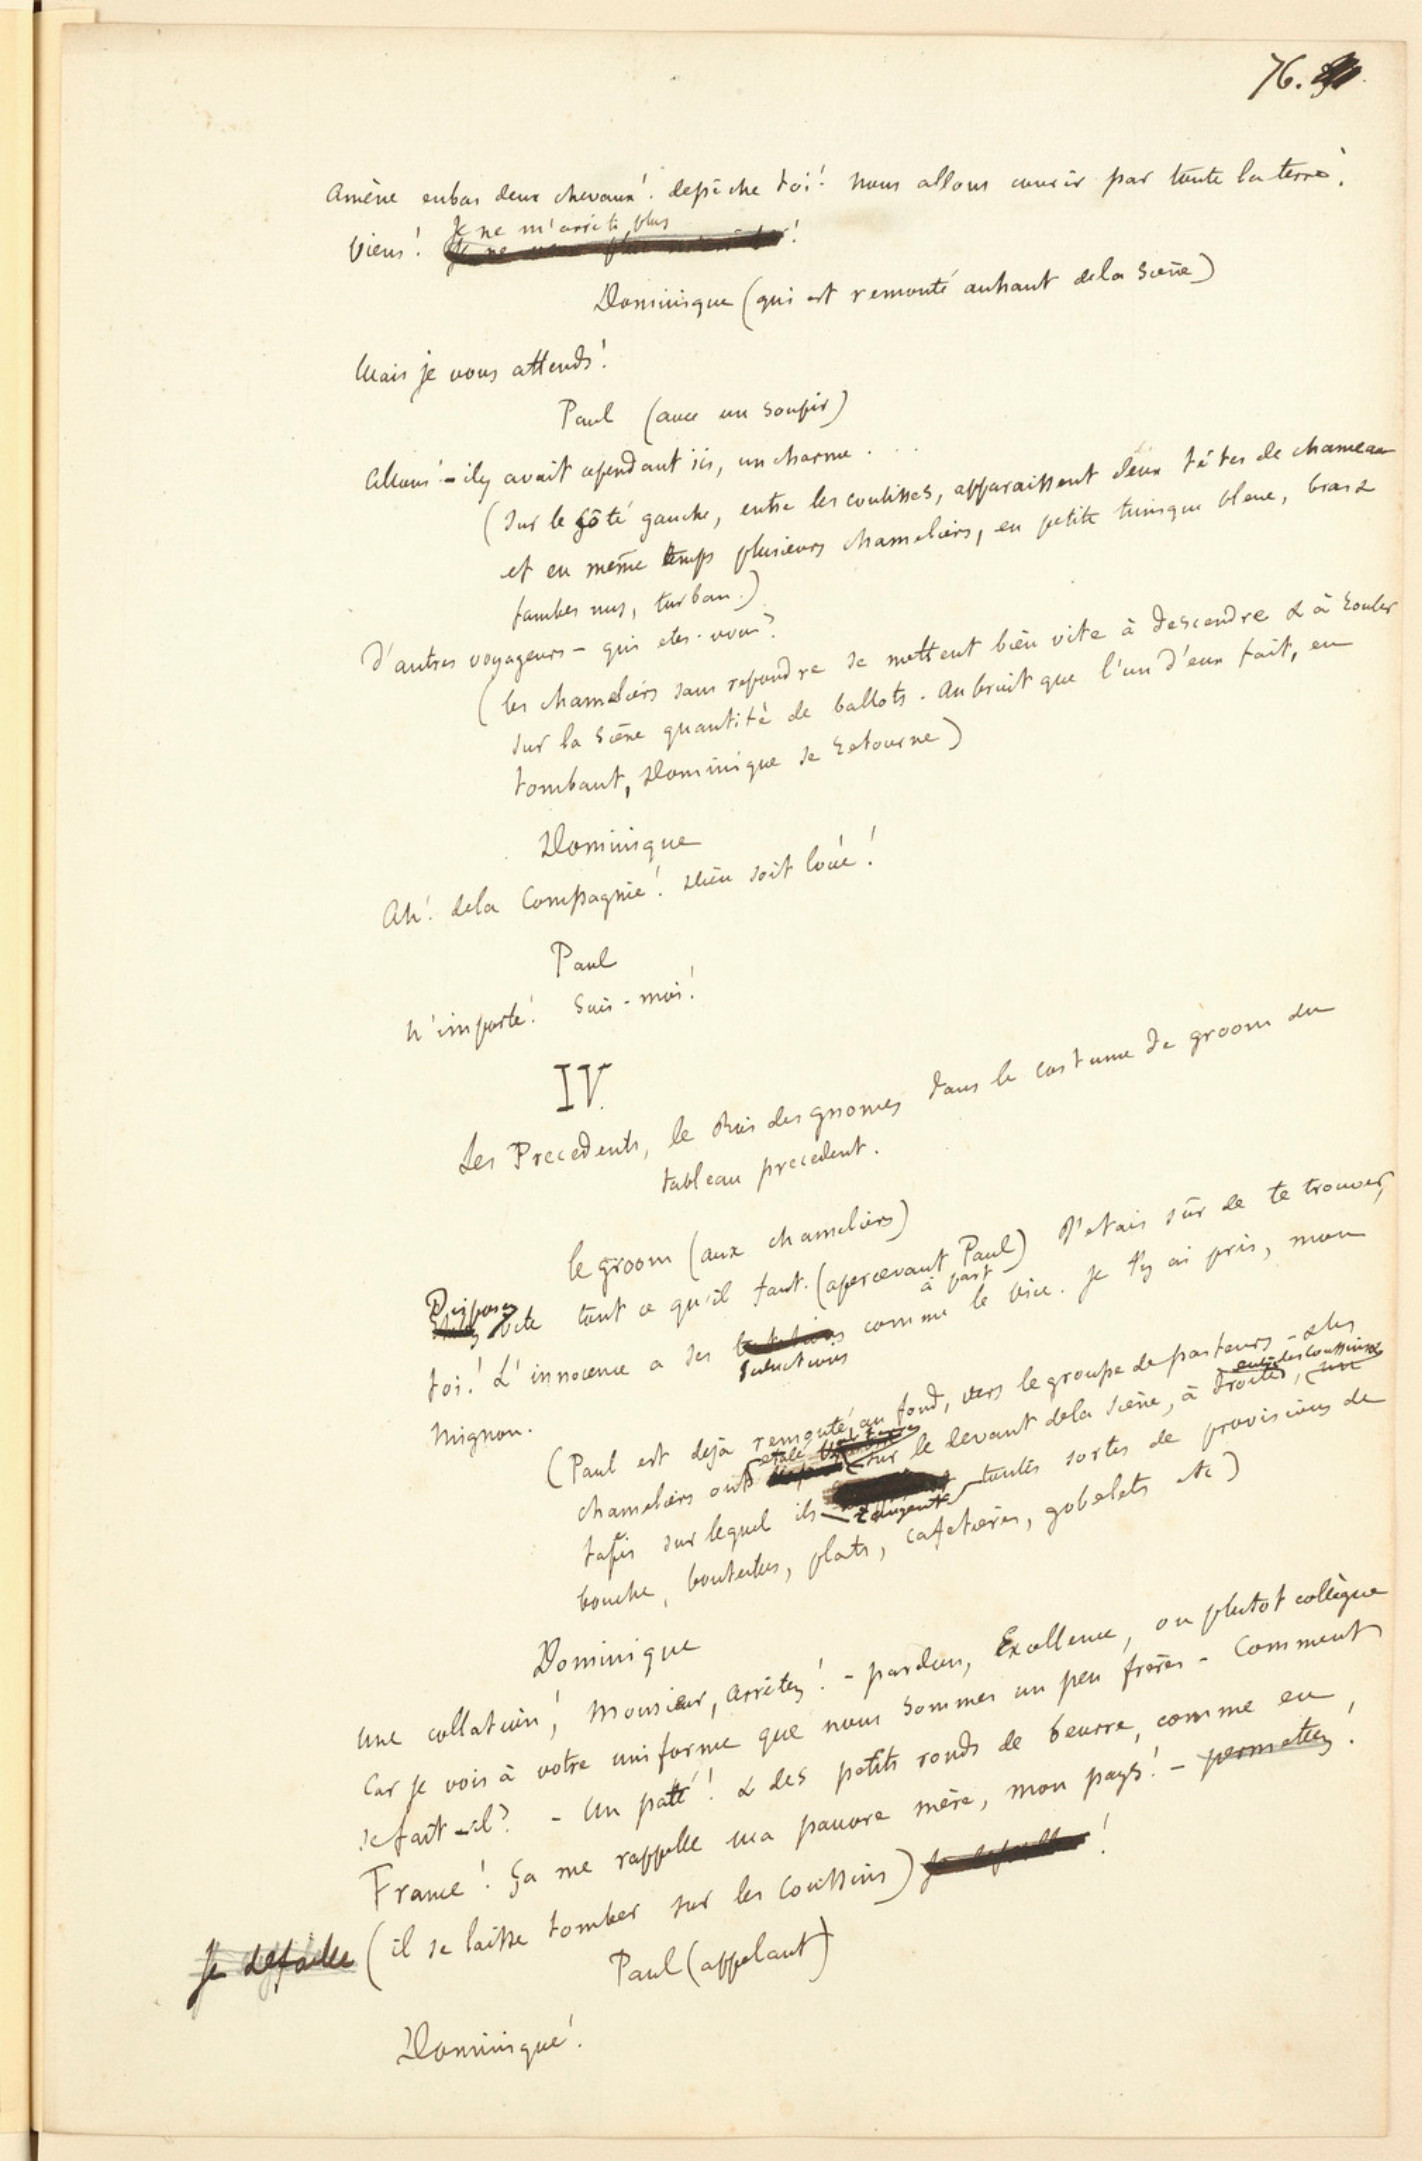 76.
Amène enbas deux chevaux! depêche toi! nous allons courir par toute la terre!
Je ne m'arrête plus
Viens! !
Dominique (qui est remonté enhaut dela scène)
Mais je vous attends!
Paul (avec un soupir)
Allons! - ily avait cependant ici, un charme . . .
(Sur le côté gauche, entre les coulisses, apparaissent deux têtes de chameau
et en même temps plusieurs chameliers, en petite tunique bleue, bras &
jambes nus, turban.)
D'autres voyageurs - qui etes-vous?
(les chameliers sans repondre se mettent bien vite à descendre & à rouler
sur la scène quantité de ballots. Au bruit que l'un d'eux fait, en
tombant, Dominique se retourne)
Dominique
Ah! dela Compagnie! Dieu soit loué!
Paul
N'importe! Suis-moi!
IV.
Les Precedents, le Roi des gnomes dans le costume de groom du
tableau precedent.
le groom (aux chameliers)
Disposez vite tout ce qu'il faut. (apercevant Paul) J'etais sûr de te trouver,
à part
toi! L'innocence a ses comme le vice. Je t'y ai pris, mon
seductions
mignon.
(Paul est dejà remonté au fond, vers le groupe de pasteurs - & les
etalé entre les coussins
chameliers ont sur le devant dela scène, à droite, un
tapis sur lequel ils rangent toutes sortes de provisions de
bouche, bouteilles, plats, cafetières, gobelets etc)
Dominique
Une collation! Monsieur, arrêtez! - pardon, Excellence, ou plutot collègue
Car je vois à votre uniforme que nous sommes un peu frères - Comment
se fait-il? - Un paté! & des petits ronds de beurre, comme en
France! Ça me rappelle ma pauvre mère, mon pays! - permettez!
Je defaille (il se laisse tomber sur les coussins) !
Paul (appelant)
Dominique!